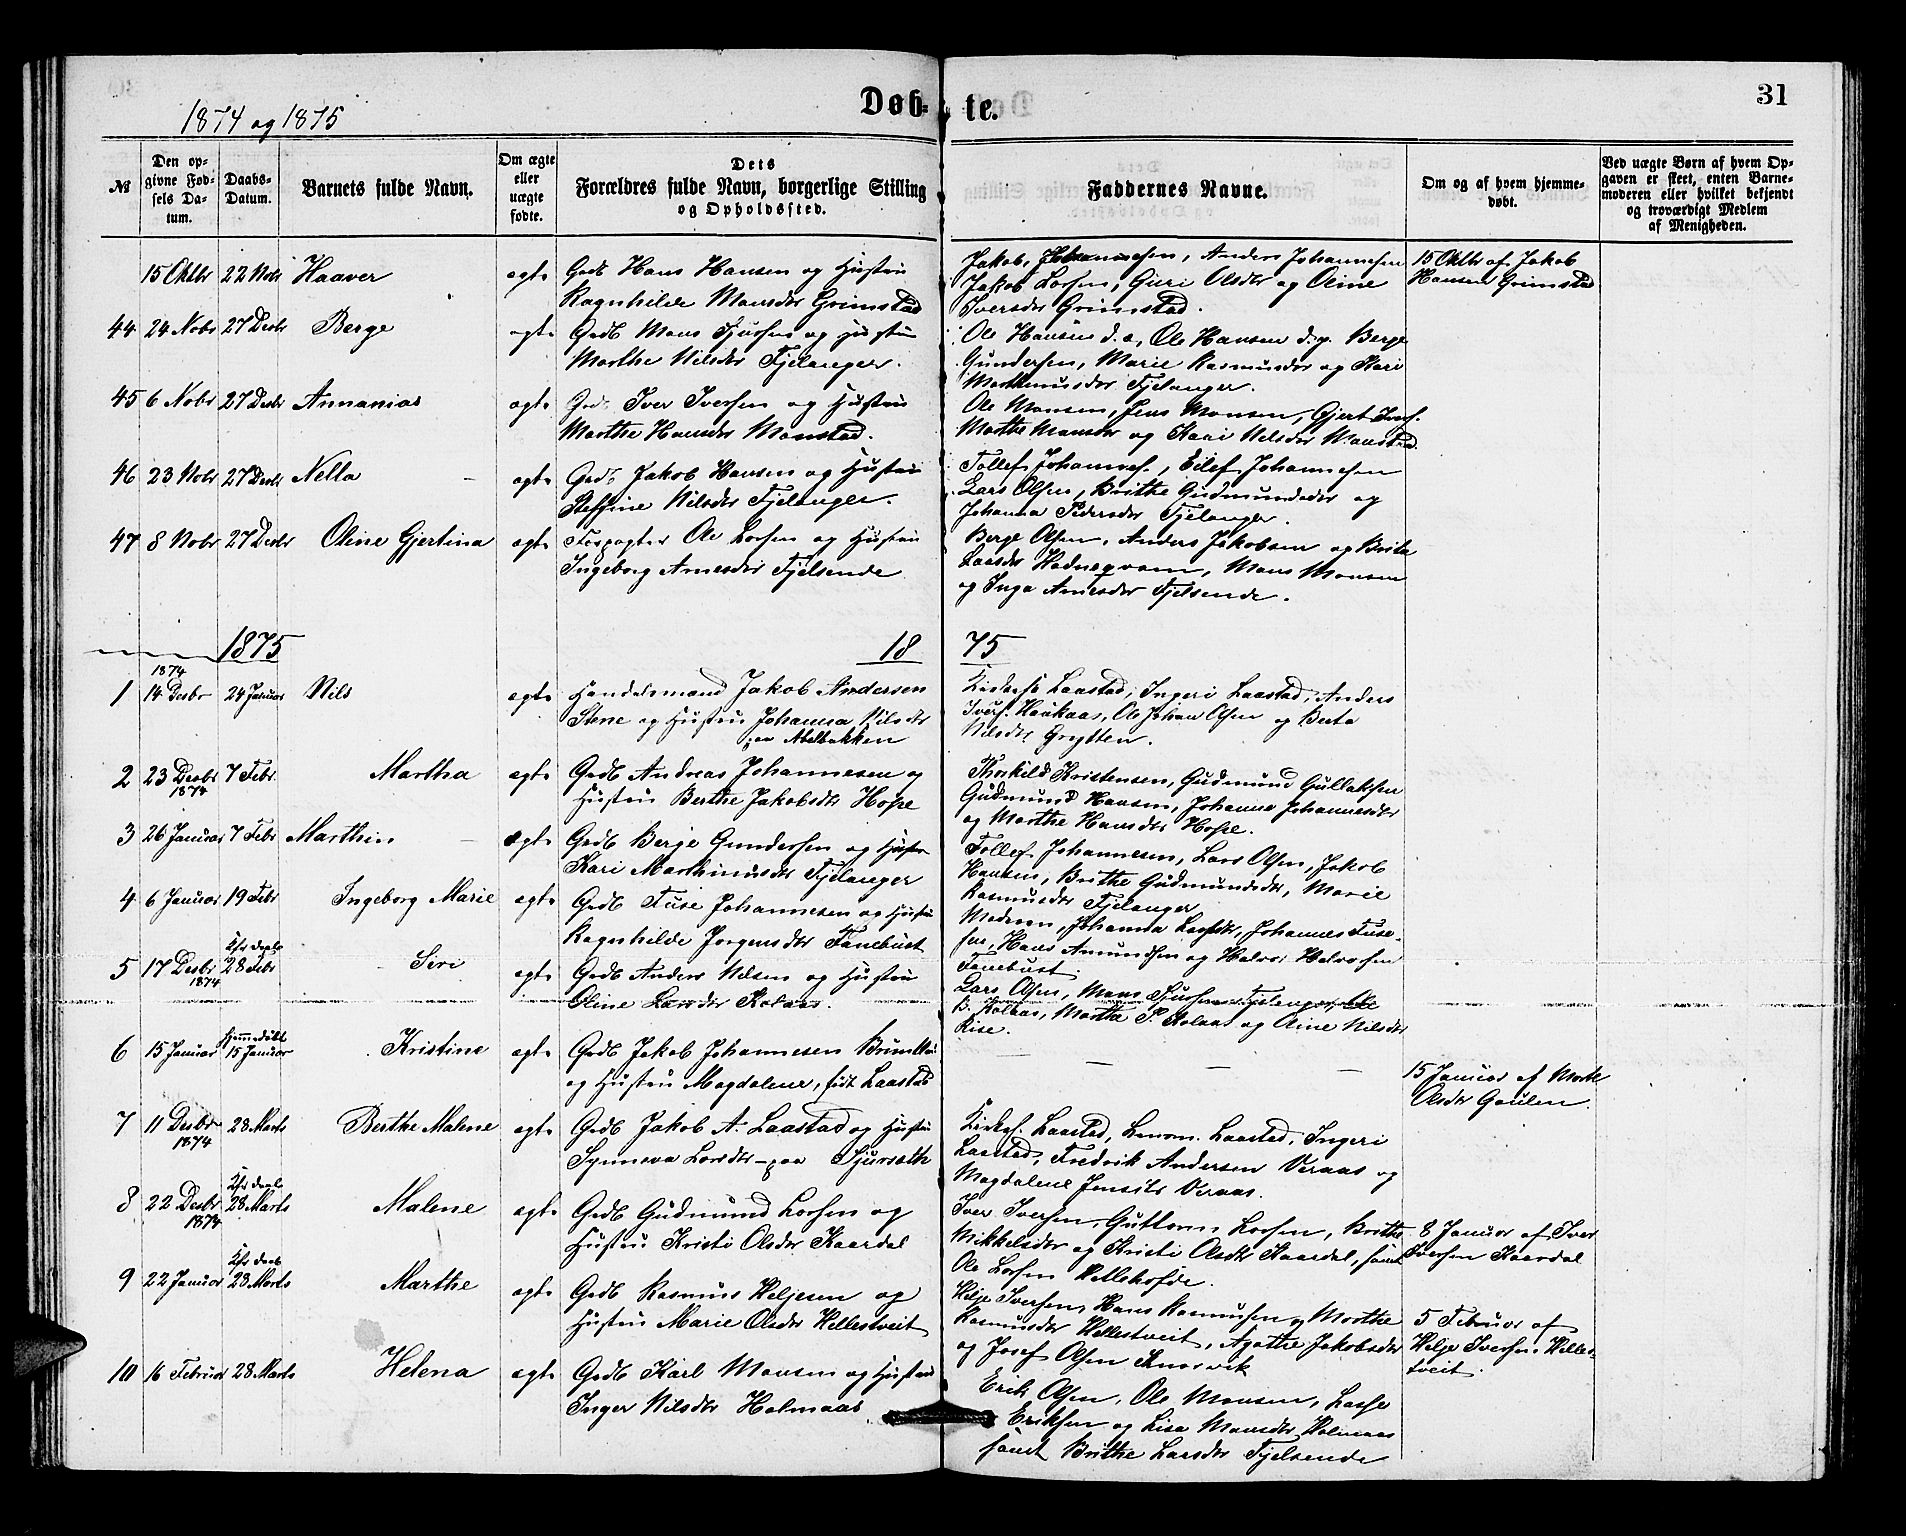 1874 og 1875
Døb-
te.
31
№
Den op-
givne Fød-
sels Da-
tum.
Daabs-
Datum.
Barnets fulde Navn.
Om ægte
eller
uægte
fødte.
Dets
Forældres fulde Navn, borgerlige Stilling
og Opholdssted.
Faddernes Navne.
Om og af hvem hjemme-
døbt.
Ved uægte Børn af hvem Op-
gaven er skeet, enten Barne-
moderen eller hvilket bekjendt
og troværdigt Medlem
af Menigheden.
15 Oktbr 22 Nobr Haaver ægte Gdb Hans Hansen og Hustru
Ragnhilde Monsdtr Grimstad
Jakob Johannesen, Anders Johannesen
Jakob Larsen, Guri Olsdtr og Oline
Iversdtr Grimstad.
15 Oktbr af Jakob
Hansen Grimstad
44 24 Nobr 27 Desbr Berge ægte Gdb Mons Sjursen og Hustru
Marthe Nilsdtr Fjelanger.
Ole Hansen d.æ, Ole Hansen d.y. Berge
Gundersen, Marie Rasmusdtr og Kari
Marthinusdtr Fjelanger.
45 6 Nobr 27 Desbr Annanias ægte Gdb Iver Iversen og Hustru
Marthe Hansdtr Monstad.
Ole Monsen, Jens Monsen, Gjert Ivers.
Marthe Monsdtr og Kari Nilsdtr Monstad.
46 23 Nobr 27 Desbr Nella ægte Gdb Jakob Hansen og Hustru
Steffine Nilsdtr Fjelanger.
Tollef Johannes., Eilef Johannesen
Lars Olsen, Brithe Gudmundsdtr og
Johanna Pedersdtr Fjelanger.
47 8 Nobr 27 Desbr Oline Gjertina ægte Forpagter Ole Larsen og Hustru
Ingeborg Arnesdtr Fjelsende
Berge Olsen, Anders Jakobsen og Brita
Larsdtr Hodneqvam, Mons Monsen
og Inga Arnesdtr Fjelsende.
1875
18 75
1874
1 14 Desbr 24 Januar Nils ægte Handelsmand Jakob Andersen
Stene og Hustru Johanna Nilsdtr
paa Abelbakken
Kirkes. Laastad, Ingeri Laastad, Anders
Ivers. Haukaas, Ole Johan Olsen og Berta
Nilsdtr Grytten.
2 23 Desbr 7 Febr. Martha ægte Gdb Andreas Johannesen og
1874
Hustru Berthe Jakobsdtr Hope
Thorkild Kristensen, Gudmund Gullaksen
Gudmund Hansen, Johanne Johannesdtr
og Marthe Hansdtr Hope.
3 26 Januar 7 Febr Marthin ægte Gdb Berge Gundersen og Hustru
Kari Marthinusdtr Fjelanger
Tollef Johannesen, Lars Olsen, Jakob
Hansen, Brithe Gudmundsdtr, Marie
Rasmusdtr Fjelanger
4 6 Januar 19 Febr Ingeborg Marie ægte Gdb Fuse Johannesen og Hustru
Ragnhilde Jørgensdtr Fanebust
Moderen, Johanna Larsdtr, Johannes Fuse-
sen, Hans Amundsen og Halvor Halvorsen
Fanebust.
5 17 Desbr 28 Febr Siri ægte Gdb Anders Nilsen og Hustru
1874
Oline Larsdtr Kolaas.
Lars Olsen, Mons Sjursen Fjelanger, Ole
B. Kolaas, Marthe P. Kolaas og Oline Nilsdtr
Rise.
Hjemmedøbt
6 15 Januar 15 Januar Kristine ægte Gdb Jakob Johannesen
og Hustru Magdalene, født Laastad
15 Januar af Marthe
Olsdtr Gaulen.
7 11 Desbr 28 Marts Berthe Malene ægte Gdb Jakob A. Laastad og Hustru
1874
Synneva Larsdtr paa Sjursæth
Kirkes. Laastad, Laastad, Ingeri
Laastad, Fredrik Andersen Veraas og
Magdalene Jensdtr Veraas.
8 22 Desbr 28 Marts Malene ægte Gdb Gudmund Larsen og
1874
Hustru Kristi Olsdtr Kaardal
Iver Iversen, Guttorm Larsen, Brithe
Mikkelsdtr og Kristi Olsdtr Kaardal, samt
Ole Larsen
8 Januar af Iver
Iversen Kaardal
9 22 Januar 28 Marts Marthe ægte Gdb Rasmus Heljesen og
Hustru Marie Olsdtr Hellestveit
Helje Iversen, Hans Rasmusen og Marthe
Rasmusdtr Hellestveit, Agathe Jakobsdtr
og Josef Olsen Knarvik
5 Februar af
Helje Iversen, Helles-
tveit.
10 16 Februar 28 Marts Helena ægte Gdb Karl Monsen og Hustru
Inger Nilsdtr Holmaas
Erik Olsen, Ole Monsen, Lasse
Eriksen og Lisa Monsdtr Holmaas
samt Brithe Larsdtr Fjelsende